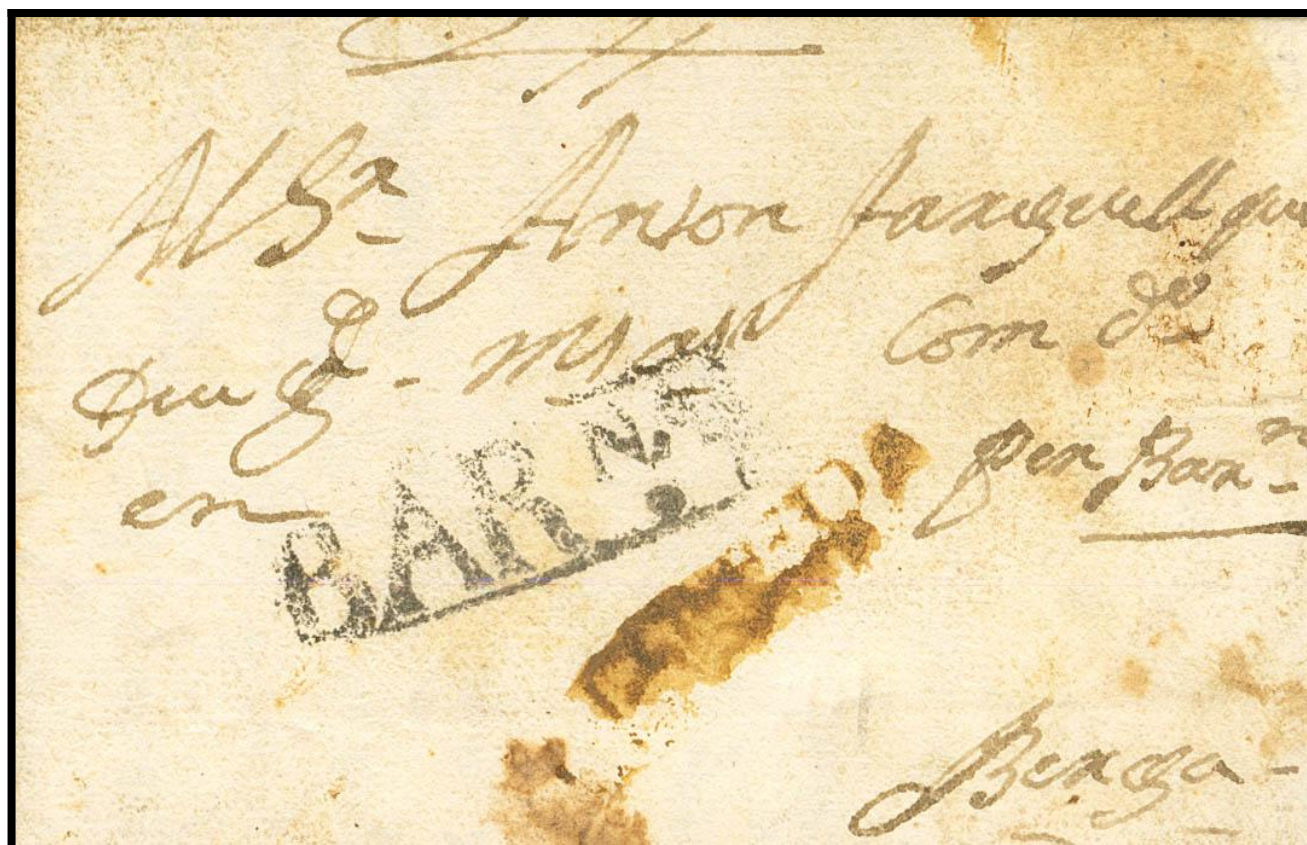 Al Sr Anton Farguell que
Deu gde - ms as Com do
en
BAR NA
per Barna
Berga -